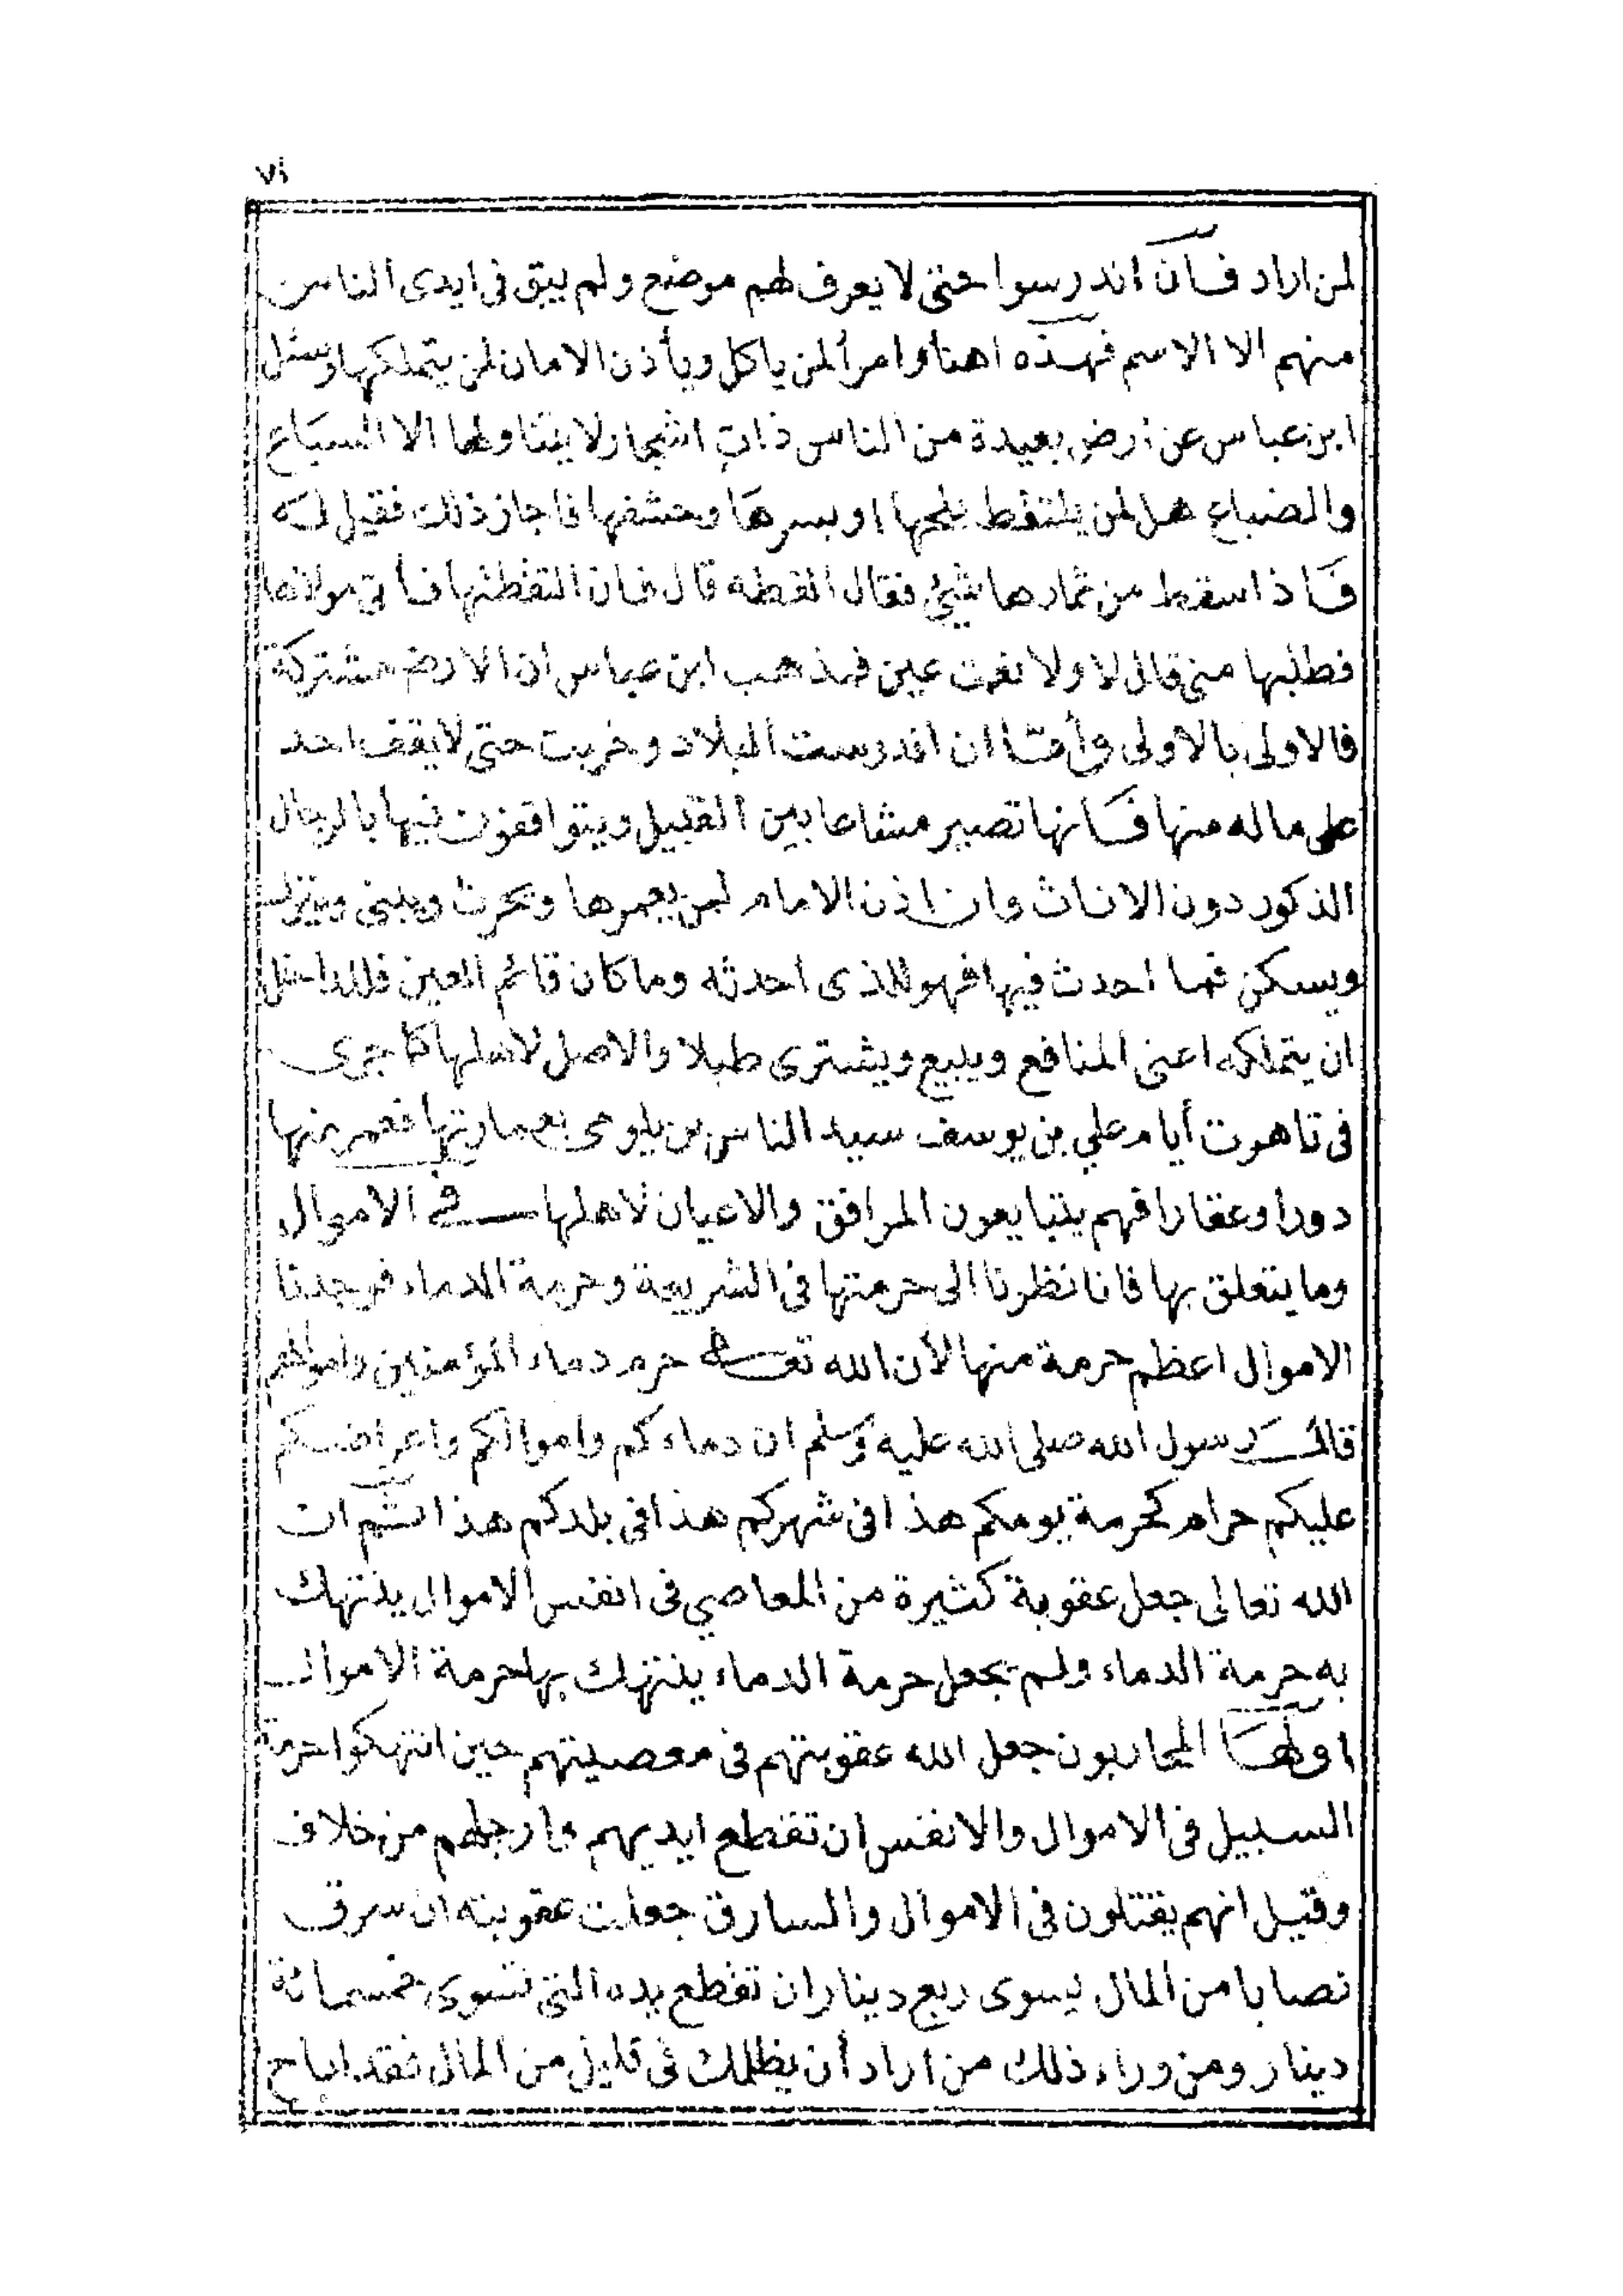 ٧١
لمن اراد فان اندرسوا حتى لا يعرف لهم موضع ولم يبق فى ايدى الناس
منهم الا الاسم فهذه اهنأ وامرأ لمن ياكل ويأذن الامان لمن يتملكها وسئل
ابن عباس عن ارض بعيدة من الناس ذات اشجار لا يتناولها الا السباع
والضباع هل لمن يلتقط بلحها او بسرها وحشفها فاجاز ذلك فقيل له
فاذا سقط من ثمارها شئ فقال القطه قال فان التقطتها فأتى مولاها
فطلبها منى قال لا ولا نعمت عين فمذهب ابن عباس ان الارض مشتركة
فالاولى بالاولى وأما ان اندرست البلاد وخربت حتى لا يقف احد
على ماله منها فانها تصير مشاعا بين القبيل ويتوافقون فيها بالرجال
الذكور دون الاناث وان اذن الامام لمن يعمرها ويحرث ويبنى وينزل
ويسكن فما احدث فيها فهو للذى احدثه وما كان قائم العين فللداخل
ان يتملكه اعنى المنافع ويبيع ويشترى طبلا والاصل لاهلها كما جرى
فى تاهرت أيام على بن يوسف سيد الناس بن يلومى بعمارتها فعمر منها
دورا وعقارا فهم يتبايعون المرافق والاعيان لاهلها فى الاموال
وما يتعلق بها فانا نظرنا الى حرمتها فى الشريعة وحرمة الدماء فوجدنا
الاموال اعظم حرمة منها لأن الله تعالى حرم دماء المؤمنين واموالهم
قال رسول الله صلى الله عليه وسلم ان دماءكم واموالكم واعراضكم
عليكم حرام كحرمة يومكم هذا فى شهركم هذا فى بلدكم هذا ثم ان
الله تعالى جعل عقوبة كثيرة من المعاصي فى انفس الاموال ينتهك
به حرمة الدماء ولم يجعل حرمة الدماء ينتهك بها حرمة الاموال
اولها المحاربون جعل الله عقوبتهم فى معصيتهم حين انتهكوا حرمة
السبيل فى الاموال والانفس ان تقطع ايديهم وارجلهم من خلاف
وقيل انهم يقتلون فى الاموال والسارق جعلت عقوبته ان سرق
نصابا من المال يسوى ربع دينار ان تقطع يده التى تسوى خمسمائة
دينار ومن وراء ذلك من اراد أن يظلمك فى قليل من المال فقد اباح